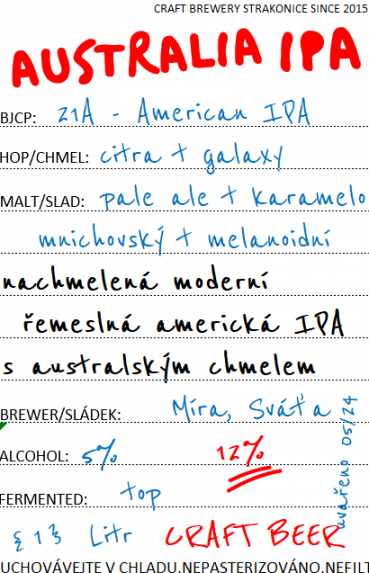 CRAFT BREWERY STRAKONICE SINCE 2015
AUSTRALIA IPA
BJCP: 21A - American IPA
HOP/CHMEL: citra + galaxy
MALT/SLAD: pale ale + karamelo
mnichovský + melanoidní
nachmelená moderní
řemeslná americká IPA
s australským chmelem
BREWER/SLÁDEK: Míra, Sváťa
uvařeno 05/24
ALCOHOL: 5% 12%
FERMENTED: top
Litr CRAFT BEER
UCHOVÁVEJTE V CHLADU,NEPASTERIZOVÁNO,NEFILT